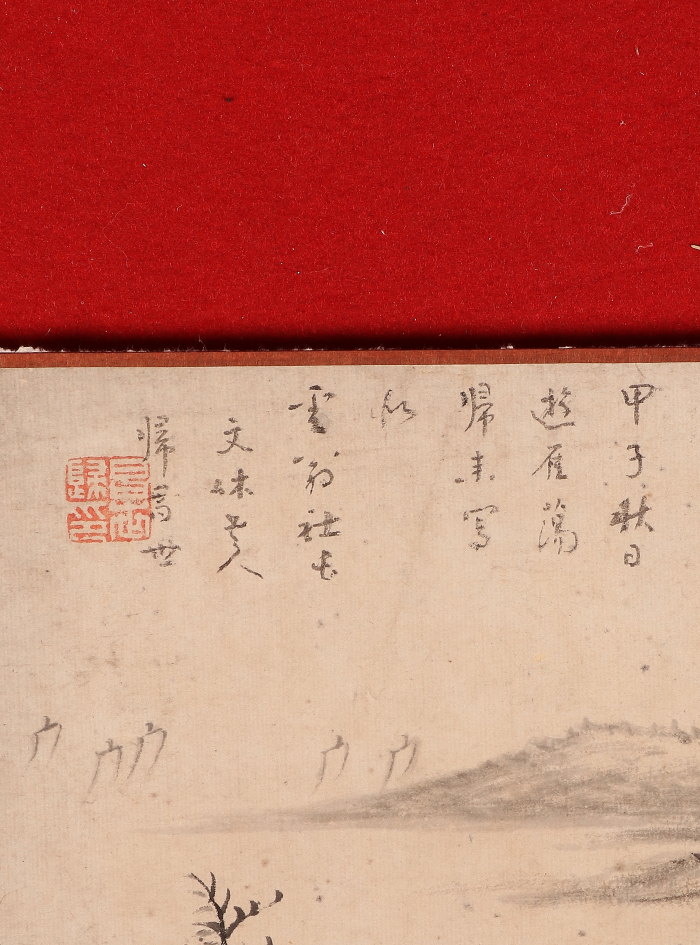 甲子秋日
遊雁蕩
歸來寫
似
雲翁社長
文休老人
歸昌世
歸昌世印